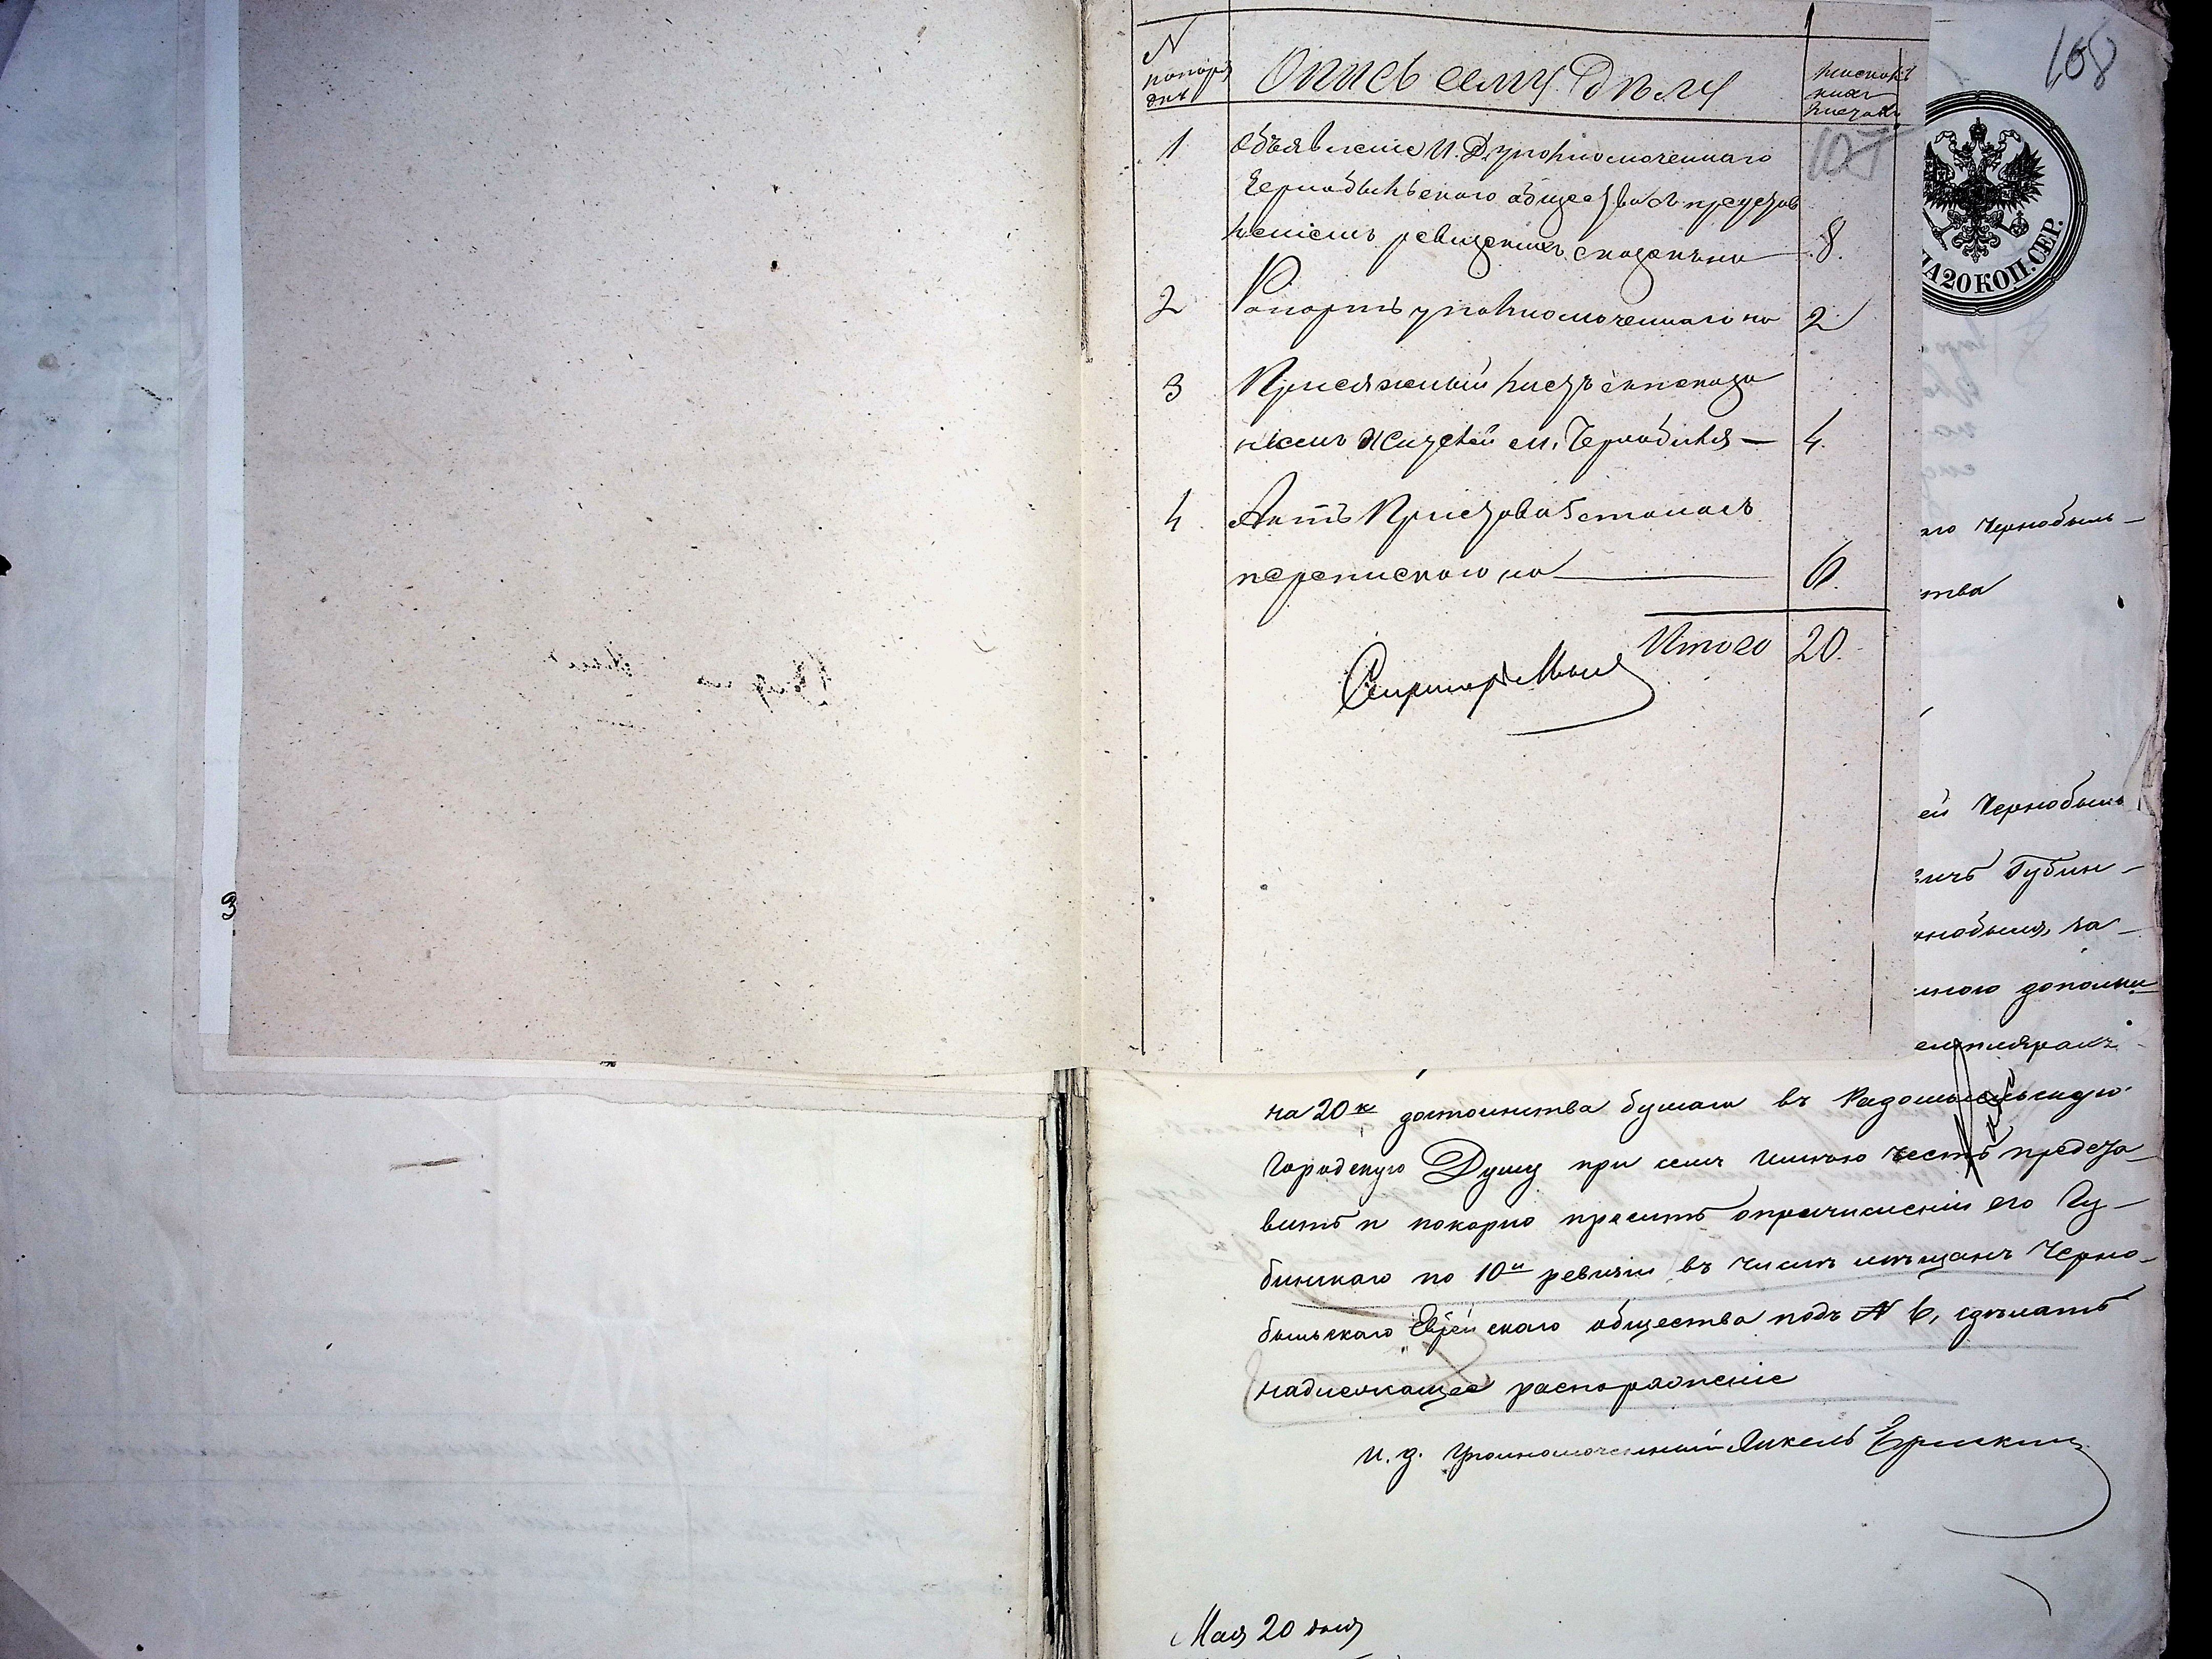 108
N попоряdку
Опись сему Дѣлу
число писанныхъ листовъ
107
1 Объявленіе И. Д. уполномоченнаго
Чернобыльскаго общества съ представ
леніемъ ревизскихъ сказокъ на 8.
2 Рапортъ уполномоченнаго на 2
3 Присяжный листъ съ показа
ніемъ жителей м. Чернобыля — 4.
4 Актъ Пристава 5 стана съ
перепискою на 6.
Итого 20.
НА 20 КОП. СЕР.
го Чернобыль-
ства
ей Чернобыль
вичъ Губин-
рнобыля, на-
ннаго дополни
емплярахъ
на 20 к достоинства бумаги въ Радомысльскую
Городскую Думу при семъ имѣю честь предста-
вить и покорно просить о причисленіи его Гу-
бинскаго по 10й ревизіи въ число мѣщанъ Черно-
быльскаго Еврейскаго общества подъ N 6, сдѣлать
надлежащее распоряженіе
И. д. Уполномоченный Янкель
Мая 20 дня
3